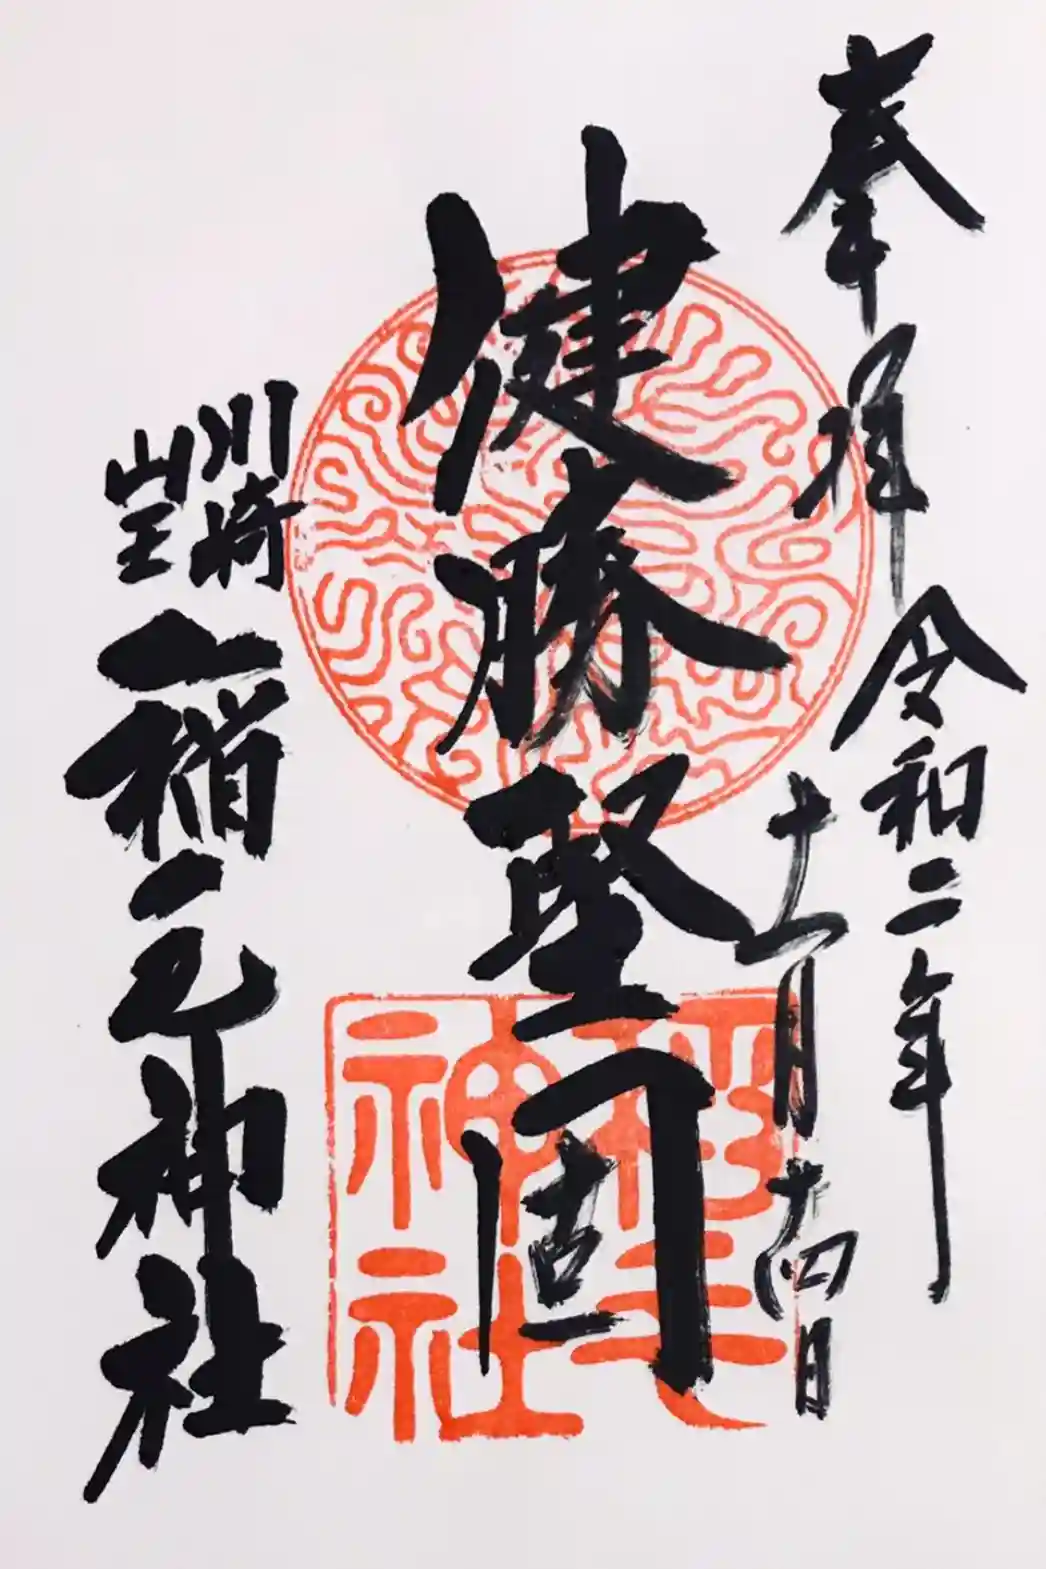 奉拝
令和二年
十一月十四日
健勝堅固
川崎
山王
稲毛神社
稲毛神社